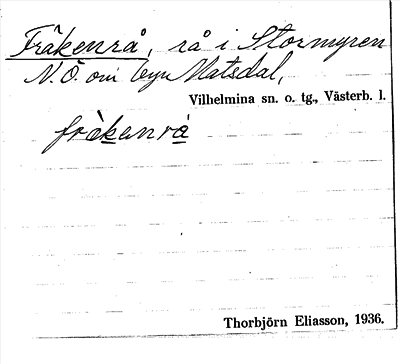 Fräkenrå, rå i Stormyren
N.Ö. om byn Matsdal,
Vilhelmina sn. o. tg., Västerb. l.
fràkenrå
Thorbjörn Eliasson, 1936.